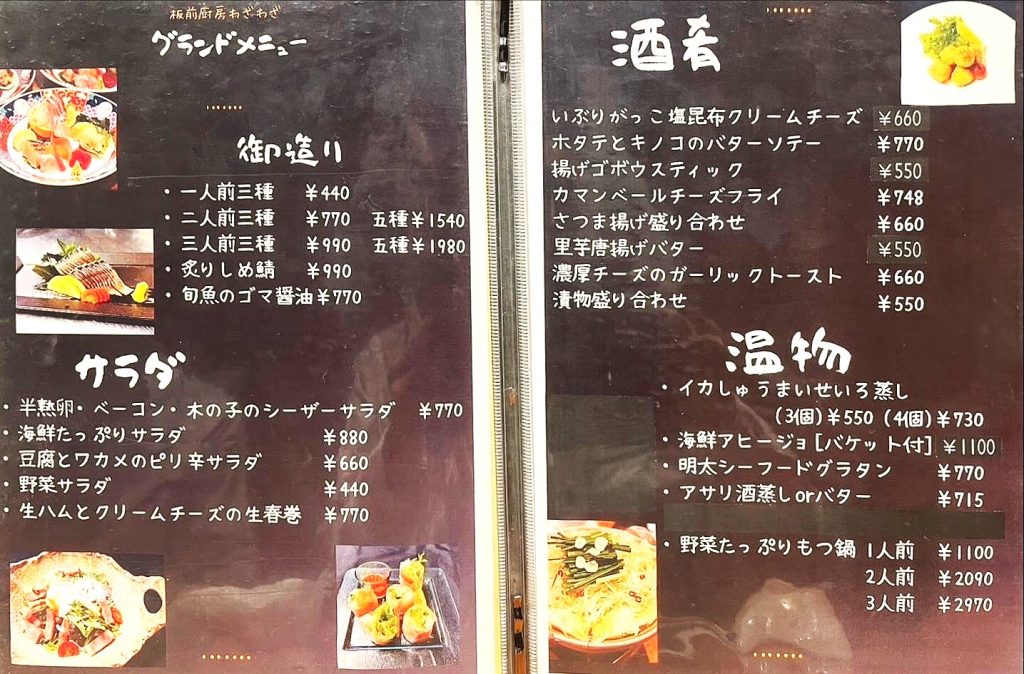 板前厨房わざわざ
グランドメニュー
御造り
・一人前三種 ¥440
・二人前三種 ¥770 五種¥1540
・三人前三種 ¥990 五種¥1980
・炙りしめ鯖 ¥990
・旬魚のゴマ醤油¥770
サラダ
・半熟卵・ベーコン・木の子のシーザーサラダ ¥770
・海鮮たっぷりサラダ ¥880
・豆腐とワカメのピリ辛サラダ ¥660
・野菜サラダ ¥440
・生ハムとクリームチーズの生春巻 ¥770
酒肴
いぶりがっこ塩昆布クリームチーズ ¥660
ホタテとキノコのバターソテー ¥770
揚げゴボウスティック ¥550
カマンベールチーズフライ ¥748
さつま揚げ盛り合わせ ¥660
里芋唐揚げバター ¥550
濃厚チーズのガーリックトースト ¥660
漬物盛り合わせ ¥550
温物
・イカしゅうまいせいろ蒸し
(3個)¥550 (4個)¥730
・海鮮アヒージョ[バケット付] ¥1100
・明太シーフードグラタン ¥770
・アサリ酒蒸しorバター ¥715
・野菜たっぷりもつ鍋 1人前 ¥1100
2人前 ¥2090
3人前 ¥2970